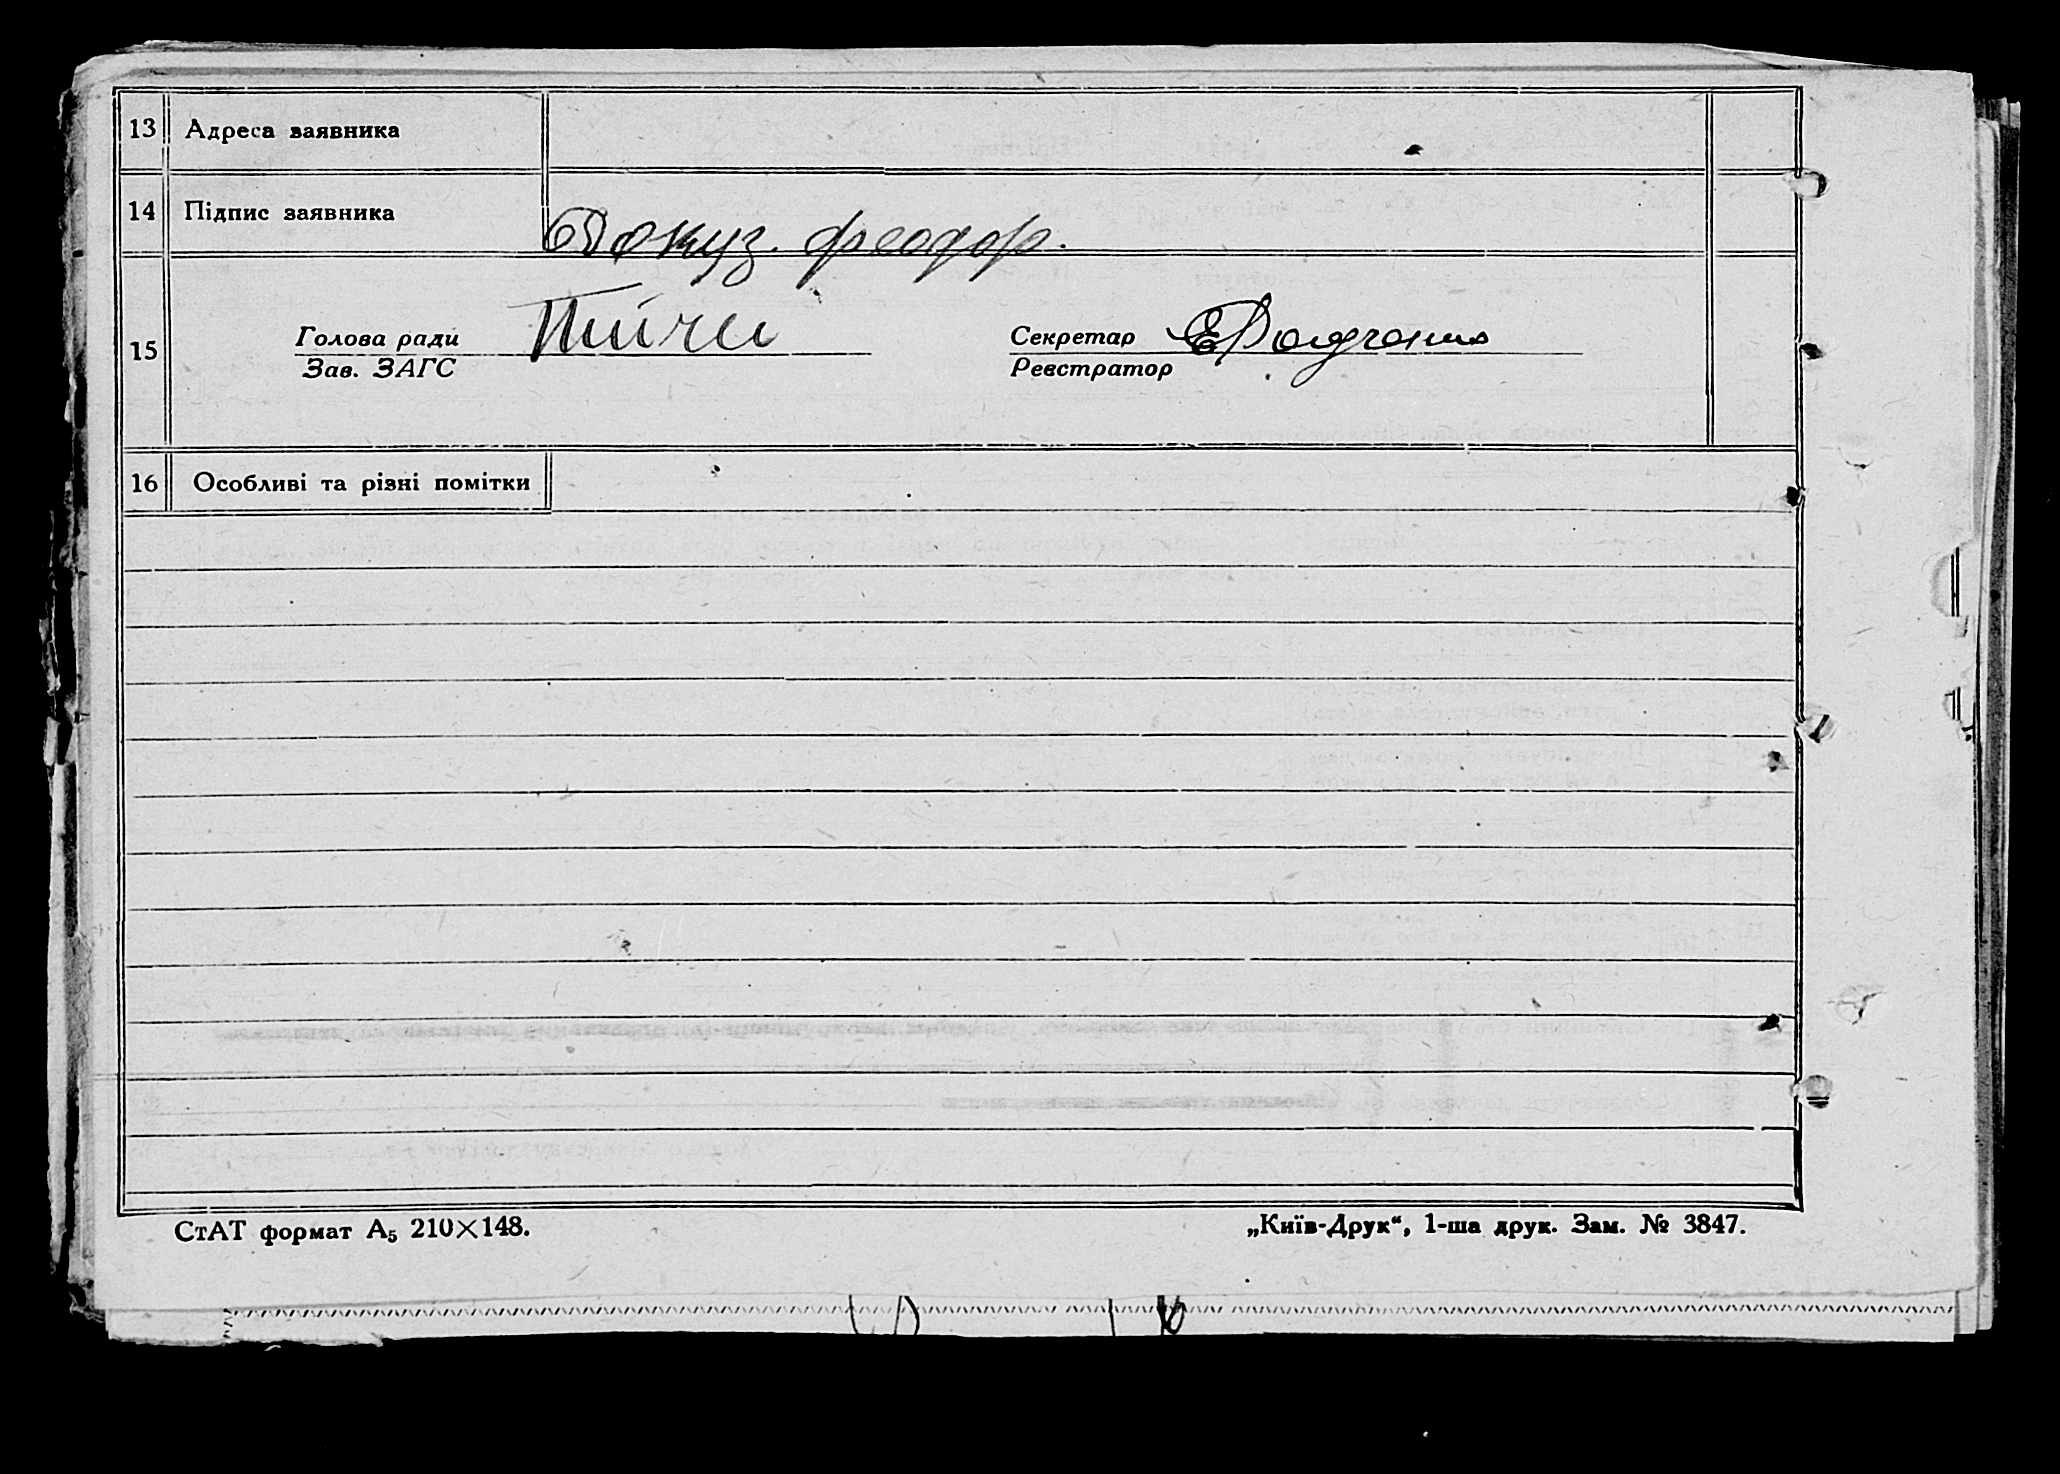 13 Адреса заявника
14 Підпис заявника
Докуз. феодор.
15 Голова ради Секретар
Зав. ЗАГС Реєстратор
16 Особливі та різні помітки
СтАТ формат А₅ 210×148. „Київ-Друк“, 1-ша друк. Зам. № 3847.